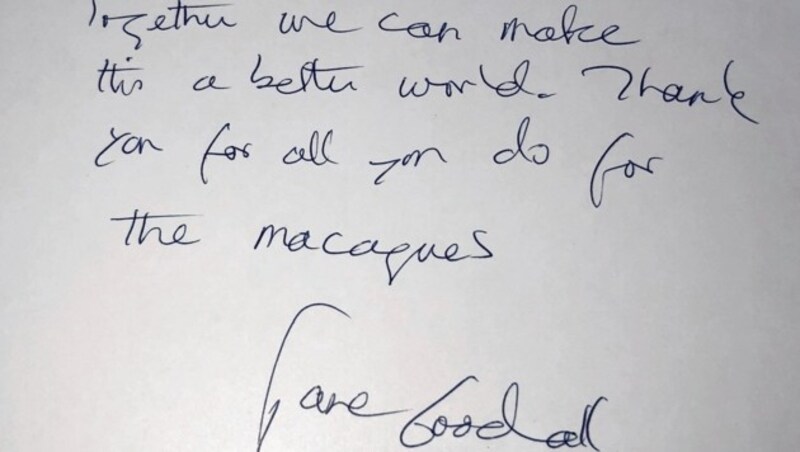 Together we can make
this a better world. Thank
you for all you do for
the macaques
Jane Goodall